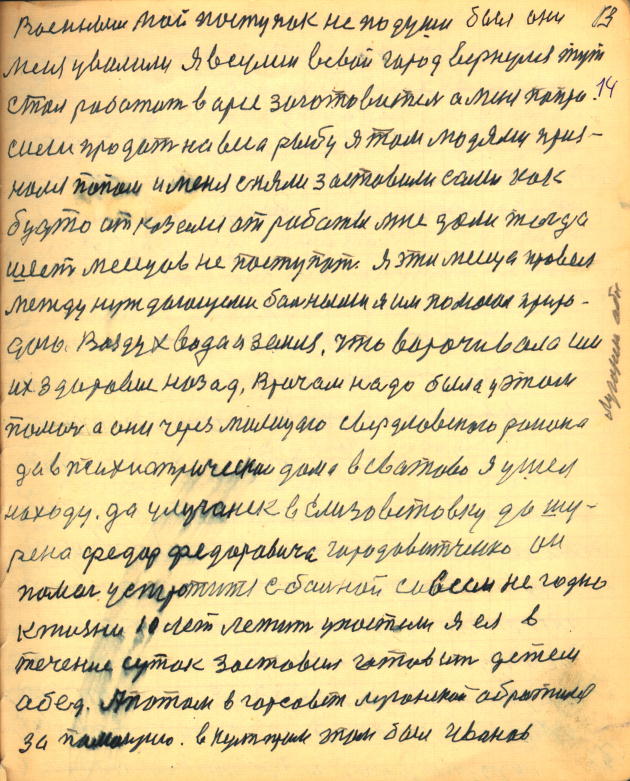 Военным мой поступок не подуши был они 83
меня уволили Я всулин в свой город вернулся тут
стал работат в арсе заготовителем а меня попро- 14
сили продать на веса рыбу я там людями приз-
нался попом и меня сняли заставили сами как
будто отказался от работы мне дали тогда
шест месецов не поступат. Я эти месеца провел
между нуждающими болными я им помогал приро-
дою. Воздух вода и земля, что ворочивала им
их здоровие назад, Врачам надо была у этом
помоч а они через милицию свердловского района
да в психиатрический дома в Сватово Я ушел
находу. да у луганск в Елизоветовку до шу-
рена федор федоровича городовитченко он
помог устротится с болной совсем не годно
к жизни 10 лет лежит у постели я ея в
течение суток заставил готовит детем
абед. Я потом в горсовет луганской обратился
за помощию. в култ этом был Иванов